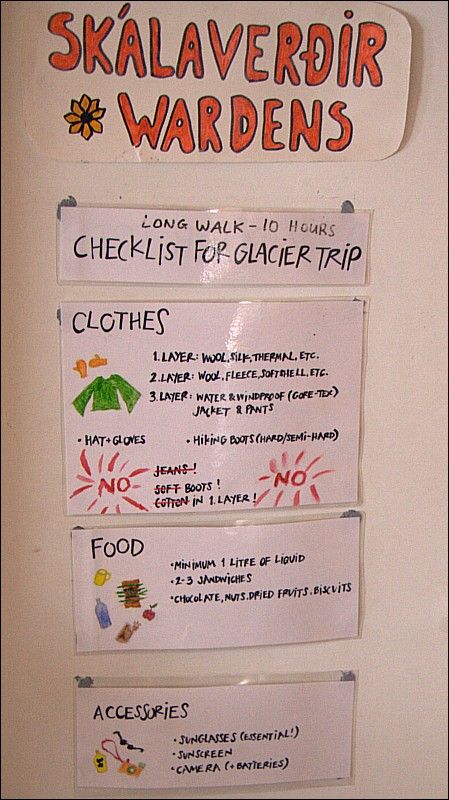 SKÁLAVERÐIR
WARDENS
LONG WALK - 10 HOURS
CHECKLIST FOR GLACIER TRIP
CLOTHES
1. LAYER: WOOL, SILK, THERMAL, ETC.
2. LAYER: WOOL, FLEECE, SOFTSHELL, ETC.
3. LAYER: WATER & WINDPROOF (GORE-TEX)
JACKET & PANTS
• HAT + GLOVES • HIKING BOOTS (HARD/SEMI-HARD)
NO JEANS! NO
SOFT BOOTS!
COTTON IN 1. LAYER!
FOOD
• MINIMUM 1 LITRE OF LIQUID
• 2-3 SANDWICHES
• CHOCOLATE, NUTS. DRIED FRUITS. BISCUITS
ACCESSORIES
• SUNGLASSES (ESSENTIAL!)
• SUNSCREEN
• CAMERA (+ BATTERIES)